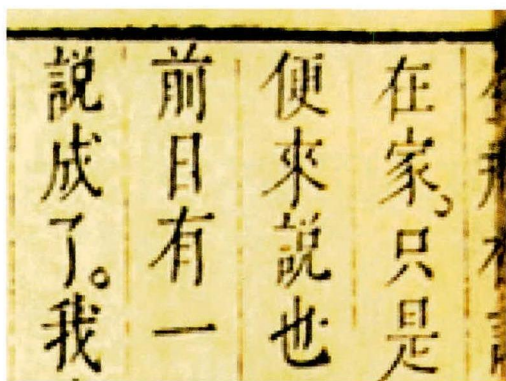 在家，只是
便來説也
前日有一
説成了。我